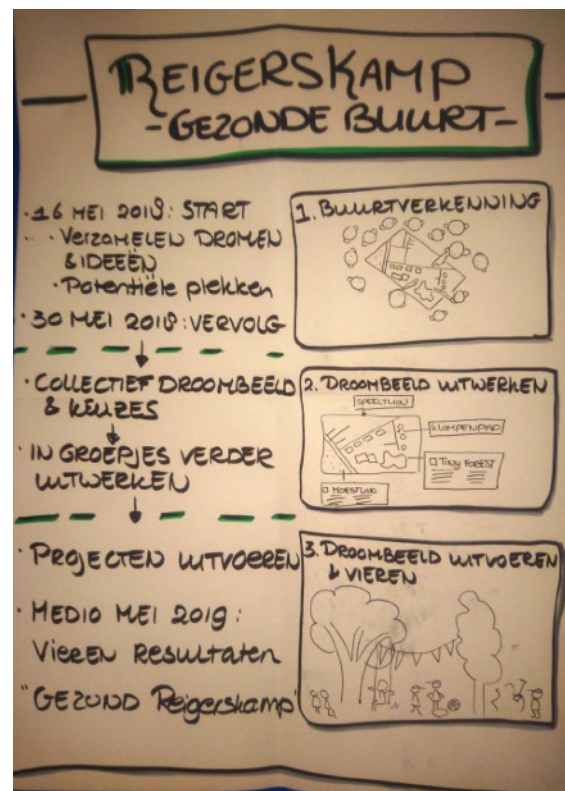 REIGERSKAMP
- GEZONDE BUURT -
· 16 MEI 2018: START
· VERZAMELEN DROMEN
& IDEEËN
· Potentiële plekken
· 30 MEI 2018: VERVOLG
· COLLECTIEF DROOMBEELD
& KEUZES
· IN GROEPJES VERDER
UITWERKEN
· PROJECTEN UITVOEREN
· MEDIO MEI 2019:
VIEREN RESULTATEN
"GEZOND Reigerskamp"
1. BUURTVERKENNING
2. DROOMBEELD UITWERKEN
SPEELTUIN
KLOMPENPAD
TINY FOREST
MOESTUIN
3. DROOMBEELD UITVOEREN
& VIEREN